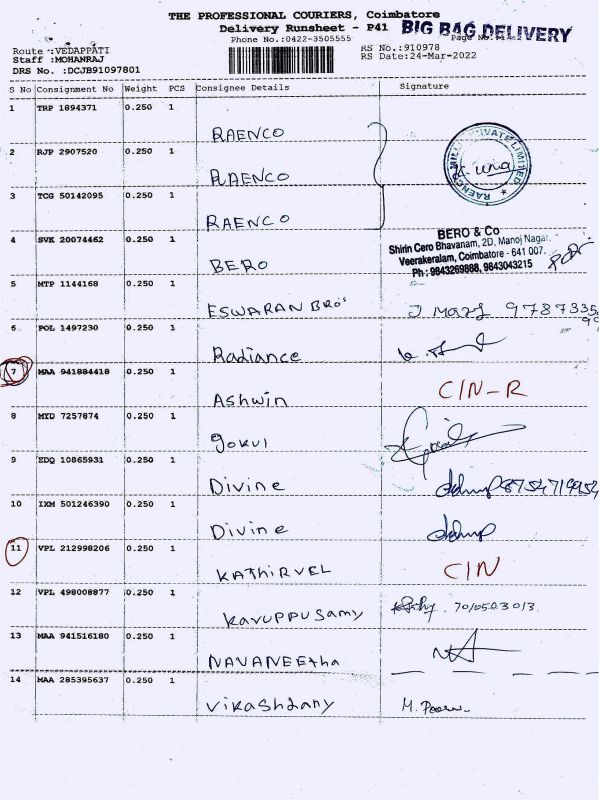 THE PROFESSIONAL COURIERS, Coimbatore
Delivery Runsheet - P41 BIG BAG DELIVERY
Phone No.:0422-3505555 Page No.
Route :VEDAPPATI RS No.:910978
Staff :MOHANRAJ RS Date:24-Mar-2022
DRS No. :DCJB91097801
S No Consignment No Weight PCS Consignee Details Signature
1 TRP 1894371 0.250 1 RAENCO
2 RJP 2907520 0.250 1 RAENCO
RAENCO MILLS PRIVATE LIMITED
3 TCG 50142095 0.250 1 RAENCO
4 SVK 20074462 0.250 1 BERO
BERO & Co
Shirin Cero Bhavanam, 2D, Manoj Nagar.
Veerakeralam, Coimbatore - 641 007.
Ph : 9843269888, 9843043215
5 MTP 1144168 0.250 1 ESWARAN BRO's
6 POL 1497230 0.250 1 Radiance
7 MAA 941884418 0.250 1 Ashwin CIN-R
8 MYD 7257874 0.250 1 gokul
9 EDQ 10865931 0.250 1 Divine
10 IXM 501246390 0.250 1 Divine
11 VPL 212998206 0.250 1 KAthiRVEL CIN
12 VPL 498008877 0.250 1 KaruppuSamy
13 MAA 941516180 0.250 1 NAVANEEtha
14 MAA 285395637 0.250 1